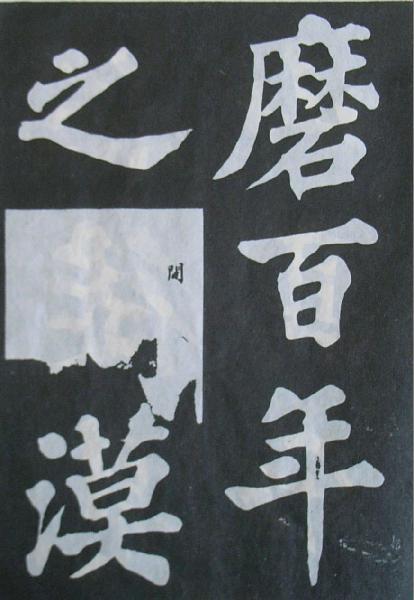 磨百年
之
間
漠